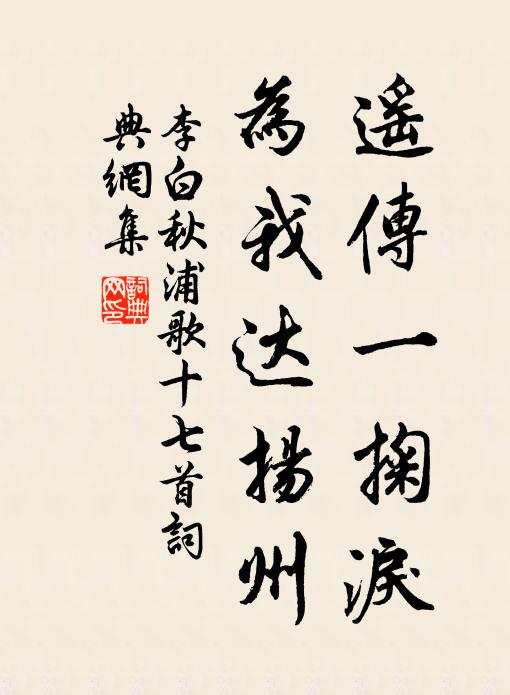 遥傳一掬淚
為我达揚州
李白秋浦歌十七首詞
典網集
詞典
网印